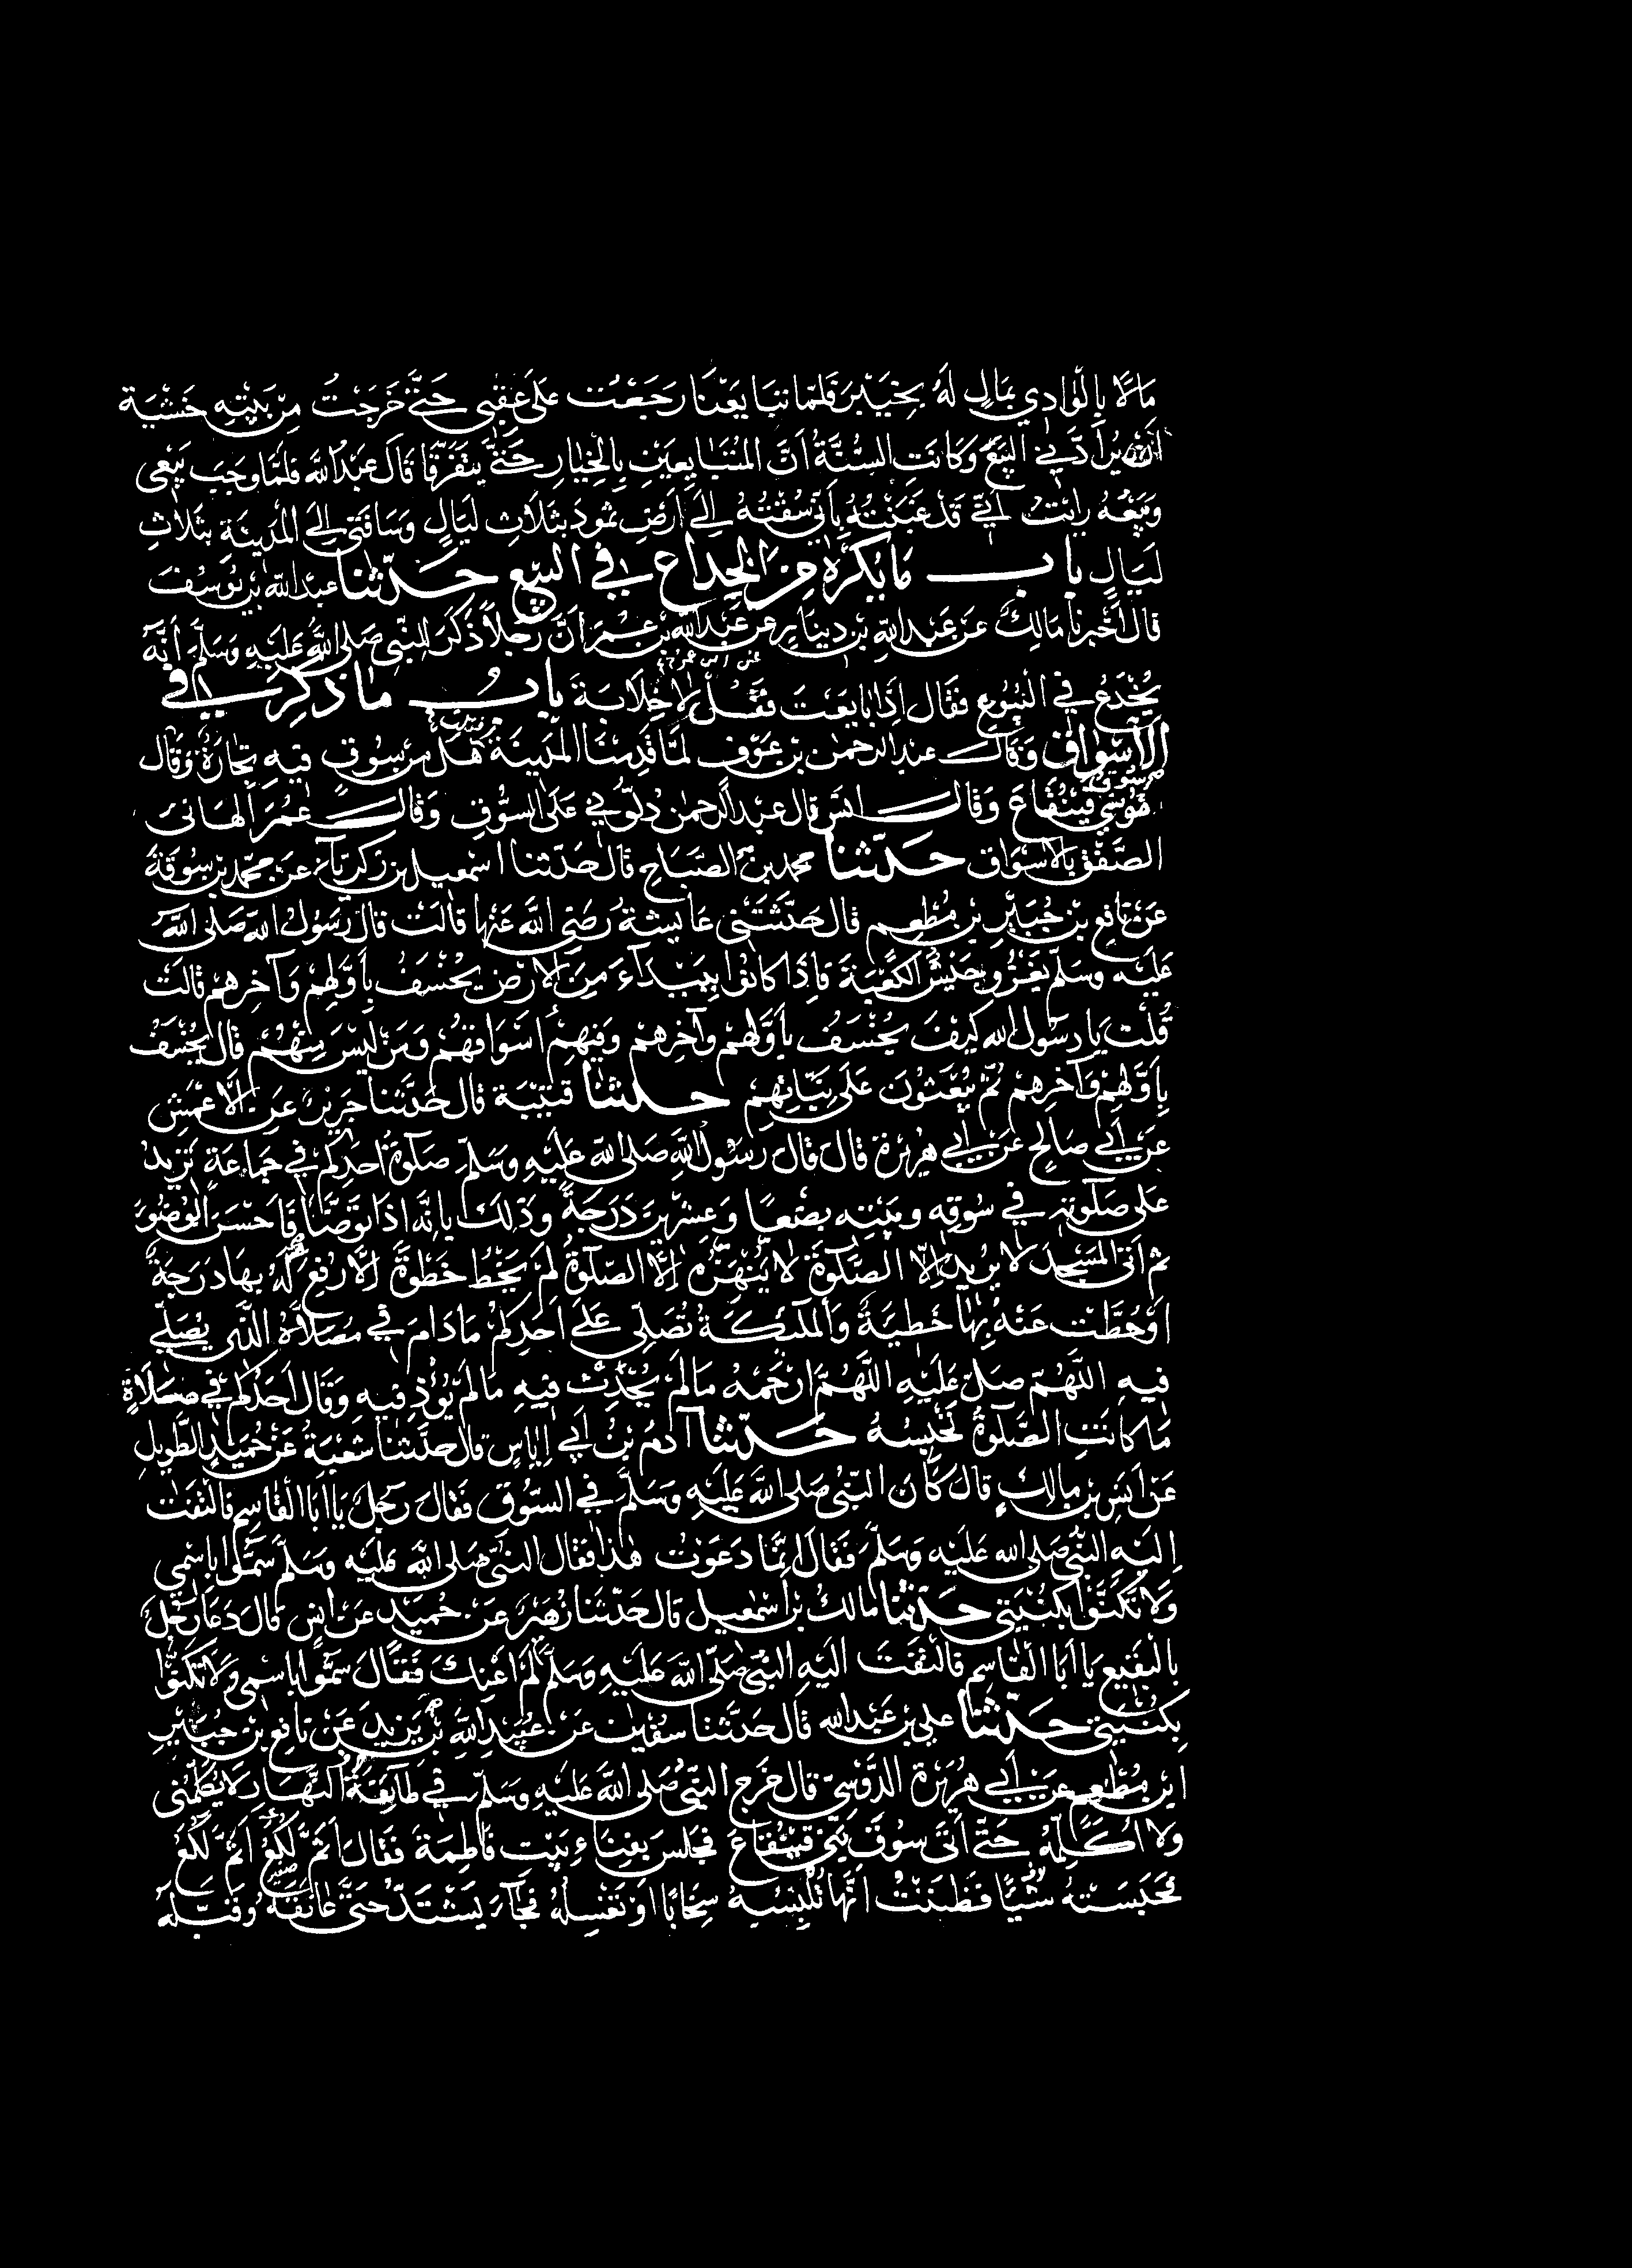 مَالًا بِالْوَادِي بِمَالٍ لَهُ بِخَيْبَرَ فَلَمَّا تَبَايَعْنَا رَجَعْتُ عَلَى عَقِبِي حَتَّى خَرَجْتُ مِنْ بَيْتِهِ خَشْيَةَ
أَنْ يُرَادَّنِي الْبَيْعَ وَكَانَتِ السُّنَّةُ أَنَّ الْمُتَبَايِعَيْنِ بِالْخِيَارِ حَتَّى يَتَفَرَّقَا قَالَ عَبْدُ اللَّهِ فَلَمَّا وَجَبَ بَيْعِي
وَبَيْعُهُ رَأَيْتُ أَنِّي قَدْ غَبَنْتُهُ بِأَنِّي سُقْتُهُ إِلَى أَرْضِ ثَمُودَ بِثَلَاثِ لَيَالٍ وَسَاقَنِي إِلَى الْمَدِينَةِ بِثَلَاثِ
لَيَالٍ بَابُ مَا يُكْرَهُ مِنَ الْخِدَاعِ فِي الْبَيْعِ حَدَّثَنَا عَبْدُ اللَّهِ بْنُ يُوسُفَ
قَالَ أَخْبَرَنَا مَالِكٌ عَنْ عَبْدِ اللَّهِ بْنِ دِينَارٍ عَنْ عَبْدِ اللَّهِ بْنِ عُمَرَ أَنَّ رَجُلًا ذَكَرَ لِلنَّبِيِّ صَلَّى اللَّهُ عَلَيْهِ وَسَلَّمَ أَنَّهُ
يُخْدَعُ فِي الْبُيُوعِ فَقَالَ إِذَا بَايَعْتَ فَقُلْ لَا خِلَابَةَ بَابُ مَا ذُكِرَ فِي
الْأَسْوَاقِ وَقَالَ عبد الرحمن بن عَوْف لَمَّا قَدِمْنَا الْمَدِينَةَ هَلْ مِنْ سُوقٍ فِيهِ تِجَارَةٌ وَقَالَ
سُوقُ قَيْنُقَاعَ وَقَالَ أنس قال عبد الرحمن دُلُّونِي عَلَى السُّوقِ وَقَالَ عُمَرُ أَلْهَانِي
الصَّفْقُ بِالْأَسْوَاقِ حَدَّثَنَا محمد بن الصَّبَّاحِ قَالَ حَدَّثَنَا اسْمعيل بن زَكَرِيَّاءَ عَنْ مُحَمَّدِ بْنِ سُوقَةَ
عَنْ نَافِعِ بْنِ جُبَيْرِ بْنِ مُطْعِمٍ قَالَ حَدَّثَتْنِي عَائِشَةُ رَضِيَ اللَّهُ عَنْهَا قَالَتْ قَالَ رَسُولُ اللَّهِ صَلَّى اللَّهُ
عَلَيْهِ وَسَلَّمَ يَغْزُو جَيْشٌ الْكَعْبَةَ فَإِذَا كَانُوا بِبَيْدَآءَ مِنَ الْأَرْضِ يُخْسَفُ بِأَوَّلِهِمْ وَآخِرِهِمْ قَالَتْ
قُلْتُ يَا رَسُولَ اللَّهِ كَيْفَ يُخْسَفُ بِأَوَّلِهِمْ وَآخِرِهِمْ وَفِيهِمْ أَسْوَاقُهُمْ وَمَنْ لَيْسَ مِنْهُمْ قَالَ يُخْسَفُ
بِأَوَّلِهِمْ وَآخِرِهِمْ ثُمَّ يُبْعَثُونَ عَلَى نِيَّاتِهِمْ حَدَّثَنَا قُتَيْبَةُ قَالَ حَدَّثَنَا جَرِيرٌ عَنِ الْأَعْمَشِ
عَنْ أَبِي صَالِحٍ عَنْ أَبِي هُرَيْرَةَ قَالَ قَالَ رَسُولُ اللَّهِ صَلَّى اللَّهُ عَلَيْهِ وَسَلَّمَ صَلَوةُ أَحَدِكُمْ فِي جَمَاعَةٍ تَزِيدُ
عَلَى صَلَوتِهِ فِي سُوقِهِ وَبَيْتِهِ بِضْعًا وَعِشْرِينَ دَرَجَةً وَذَلِكَ بِأَنَّهُ إِذَا تَوَضَّأَ فَأَحْسَنَ الْوُضُوءَ
ثُمَّ أَتَى الْمَسْجِدَ لَا يُرِيدُ إِلَّا الصَّلَوةَ لَا يَنْهَزُهُ إِلَّا الصَّلَوةُ لَمْ يَخْطُ خَطْوَةً إِلَّا رُفِعَ لَهُ بِهَا دَرَجَةٌ
أَوْ حُطَّتْ عَنْهُ بِهَا خَطِيئَةٌ وَالْمَلَئِكَةُ تُصَلِّي عَلَى أَحَدِكُمْ مَا دَامَ فِي مُصَلَّاهُ الَّذِي يُصَلِّي
فِيهِ اللَّهُمَّ صَلِّ عَلَيْهِ اللَّهُمَّ ارْحَمْهُ مَا لَمْ يُحْدِثْ فِيهِ مَا لَمْ يُؤْذِ فِيهِ وَقَالَ أَحَدُكُمْ فِي صَلَاةٍ
مَا كَانَتِ الصَّلَوةُ تَحْبِسُهُ حَدَّثَنَا آدَمُ بْنُ أَبِي إِيَاسٍ قَالَ حَدَّثَنَا شُعْبَةُ عَنْ حُمَيْدٍ الطَّوِيلِ
عَنْ أَنَسِ بْنِ مَالِكٍ قَالَ كَانَ النَّبِيُّ صَلَّى اللَّهُ عَلَيْهِ وَسَلَّمَ فِي السُّوقِ فَقَالَ رَجُلٌ يَا أَبَا الْقَاسِمِ فَالْتَفَتَ
إِلَيْهِ النَّبِيُّ صَلَّى اللَّهُ عَلَيْهِ وَسَلَّمَ فَقَالَ إِنَّمَا دَعَوْتُ هَذَا فَقَالَ النَّبِيُّ صَلَّى اللَّهُ عَلَيْهِ وَسَلَّمَ سَمُّوا بِاسْمِي
وَلَا تَكَنَّوْا بِكُنْيَتِي حَدَّثَنَا مَالِكُ بْنُ اسْمعيل قَالَ حَدَّثَنَا زُهَيْرٌ عَنْ حُمَيْدٍ عَنْ أَنَسٍ قَالَ دَعَا رَجُلٌ
بِالْبَقِيعِ يَا أَبَا الْقَاسِمِ فَالْتَفَتَ الَيْهِ النَّبِيُّ صَلَّى اللَّهُ عَلَيْهِ وَسَلَّمَ لَمْ أَعْنِكَ فَقَالَ سَمُّوا بِاسْمِي وَلَا تَكَنَّوْا
بِكُنْيَتِي حَدَّثَنَا عَلِي بن عَبْدِ اللَّهِ قَالَ حَدَّثَنَا سُفْيَانُ عَنْ عُبَيْدِ اللَّهِ بْنِ يَزِيدَ عَنْ نَافِعِ بْنِ جُبَيْرِ
ابْنِ مُطْعِمٍ عَنْ أَبِي هُرَيْرَةَ الدَّوْسِيِّ قَالَ خَرَجَ النَّبِيُّ صَلَّى اللَّهُ عَلَيْهِ وَسَلَّمَ فِي طَائِفَةِ النَّهَارِ لَا يُكَلِّمُنِي
وَلَا أُكَلِّمُهُ حَتَّى أَتَى سُوقَ بَنِي قَيْنُقَاعَ فَجَلَسَ بِفِنَاءِ بَيْتِ فَاطِمَةَ فَقَالَ أَثَمَّ لُكَعُ أَثَمَّ لُكَعُ
فَحَبَسَتْهُ شَيْئًا فَظَنَنْتُ أَنَّهَا تُلْبِسُهُ سِخَابًا أَوْ تُغَسِّلُهُ فَجَآءَ يَشْتَدُّ حَتَّى عَانَقَهُ وَقَبَّلَهُ